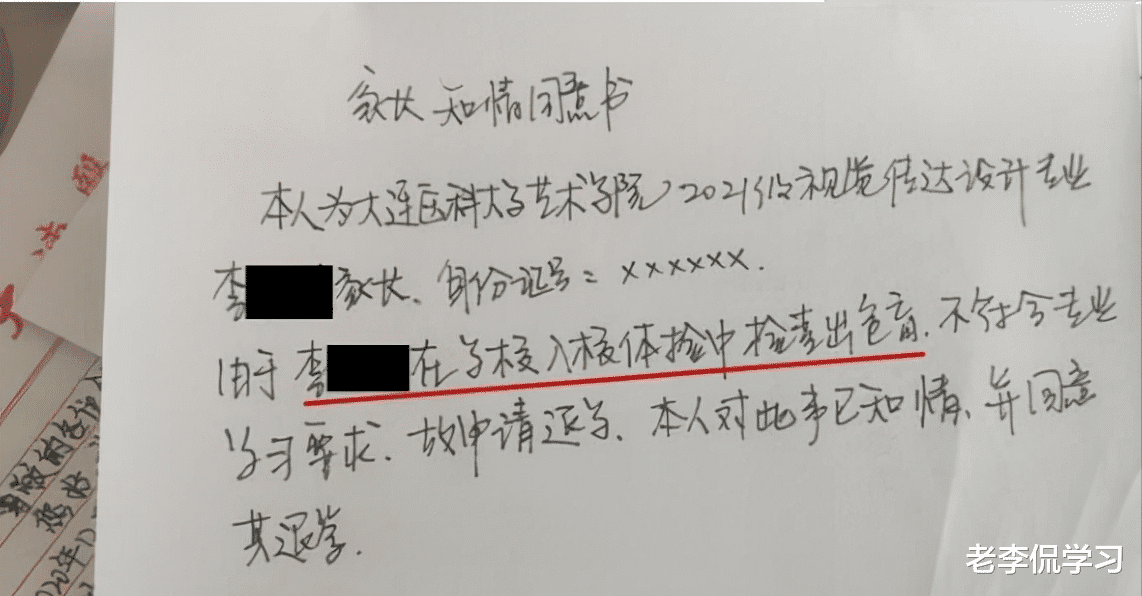 家长知情同意书
本人为大连医科大学艺术学院2021级视觉传达设计专业
李 家长、身份证号:××××××.
由于李 在学校入校体检中检查出色盲.不符合专业
学习要求.故申请退学、本人对此事已知情、并同意
其退学.
尊敬的各位
您好
2020年12
老李侃学习